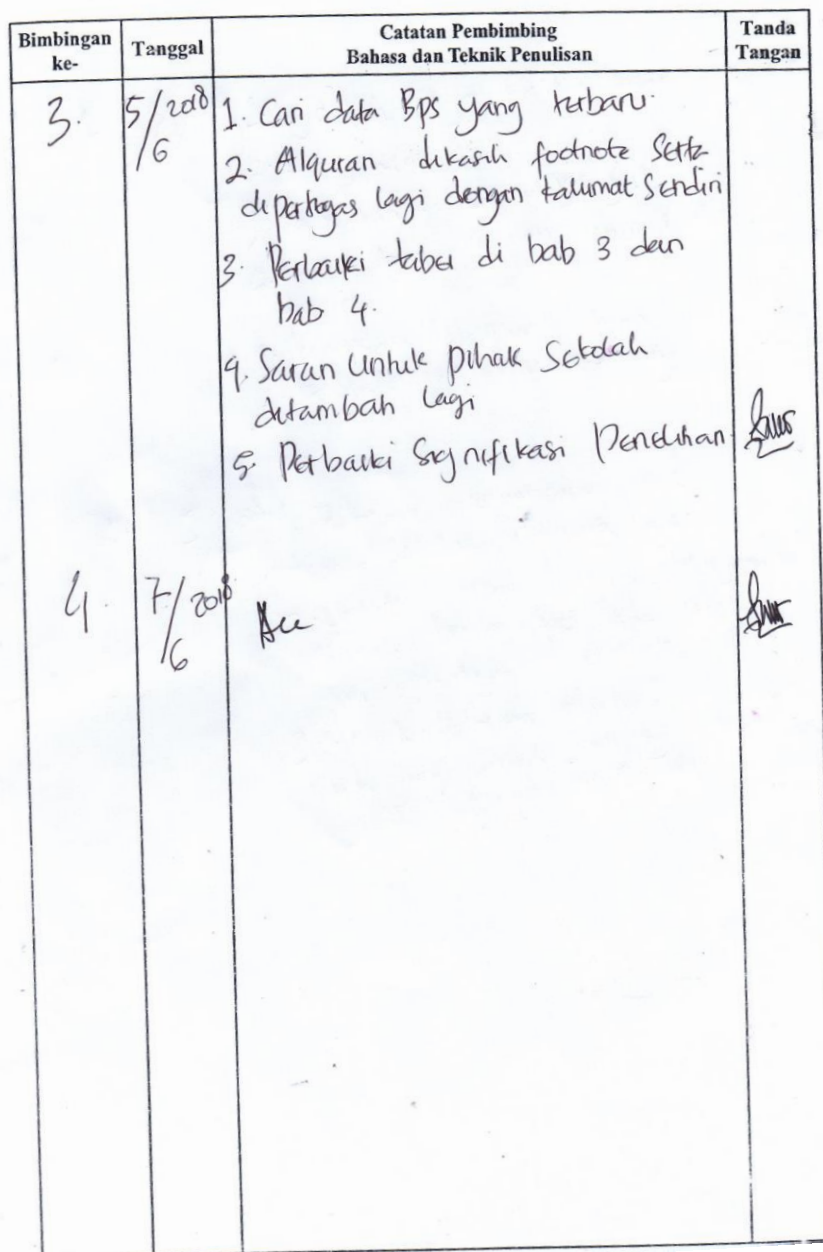 Bimbingan ke-
Tanggal
Catatan Pembimbing
Bahasa dan Teknik Penulisan
Tanda Tangan
3. 5/6 2018 1. Cari data Bps yang terbaru.
2. Alquran dikasih footnote serta
dipertegas lagi dengan kalimat sendiri
3. Perbaiki tabel di bab 3 dan
bab 4.
4. Saran untuk pihak sekolah
ditambah lagi
5. Perbaiki signifikasi penelitian
4. 7/6 2018 Acc